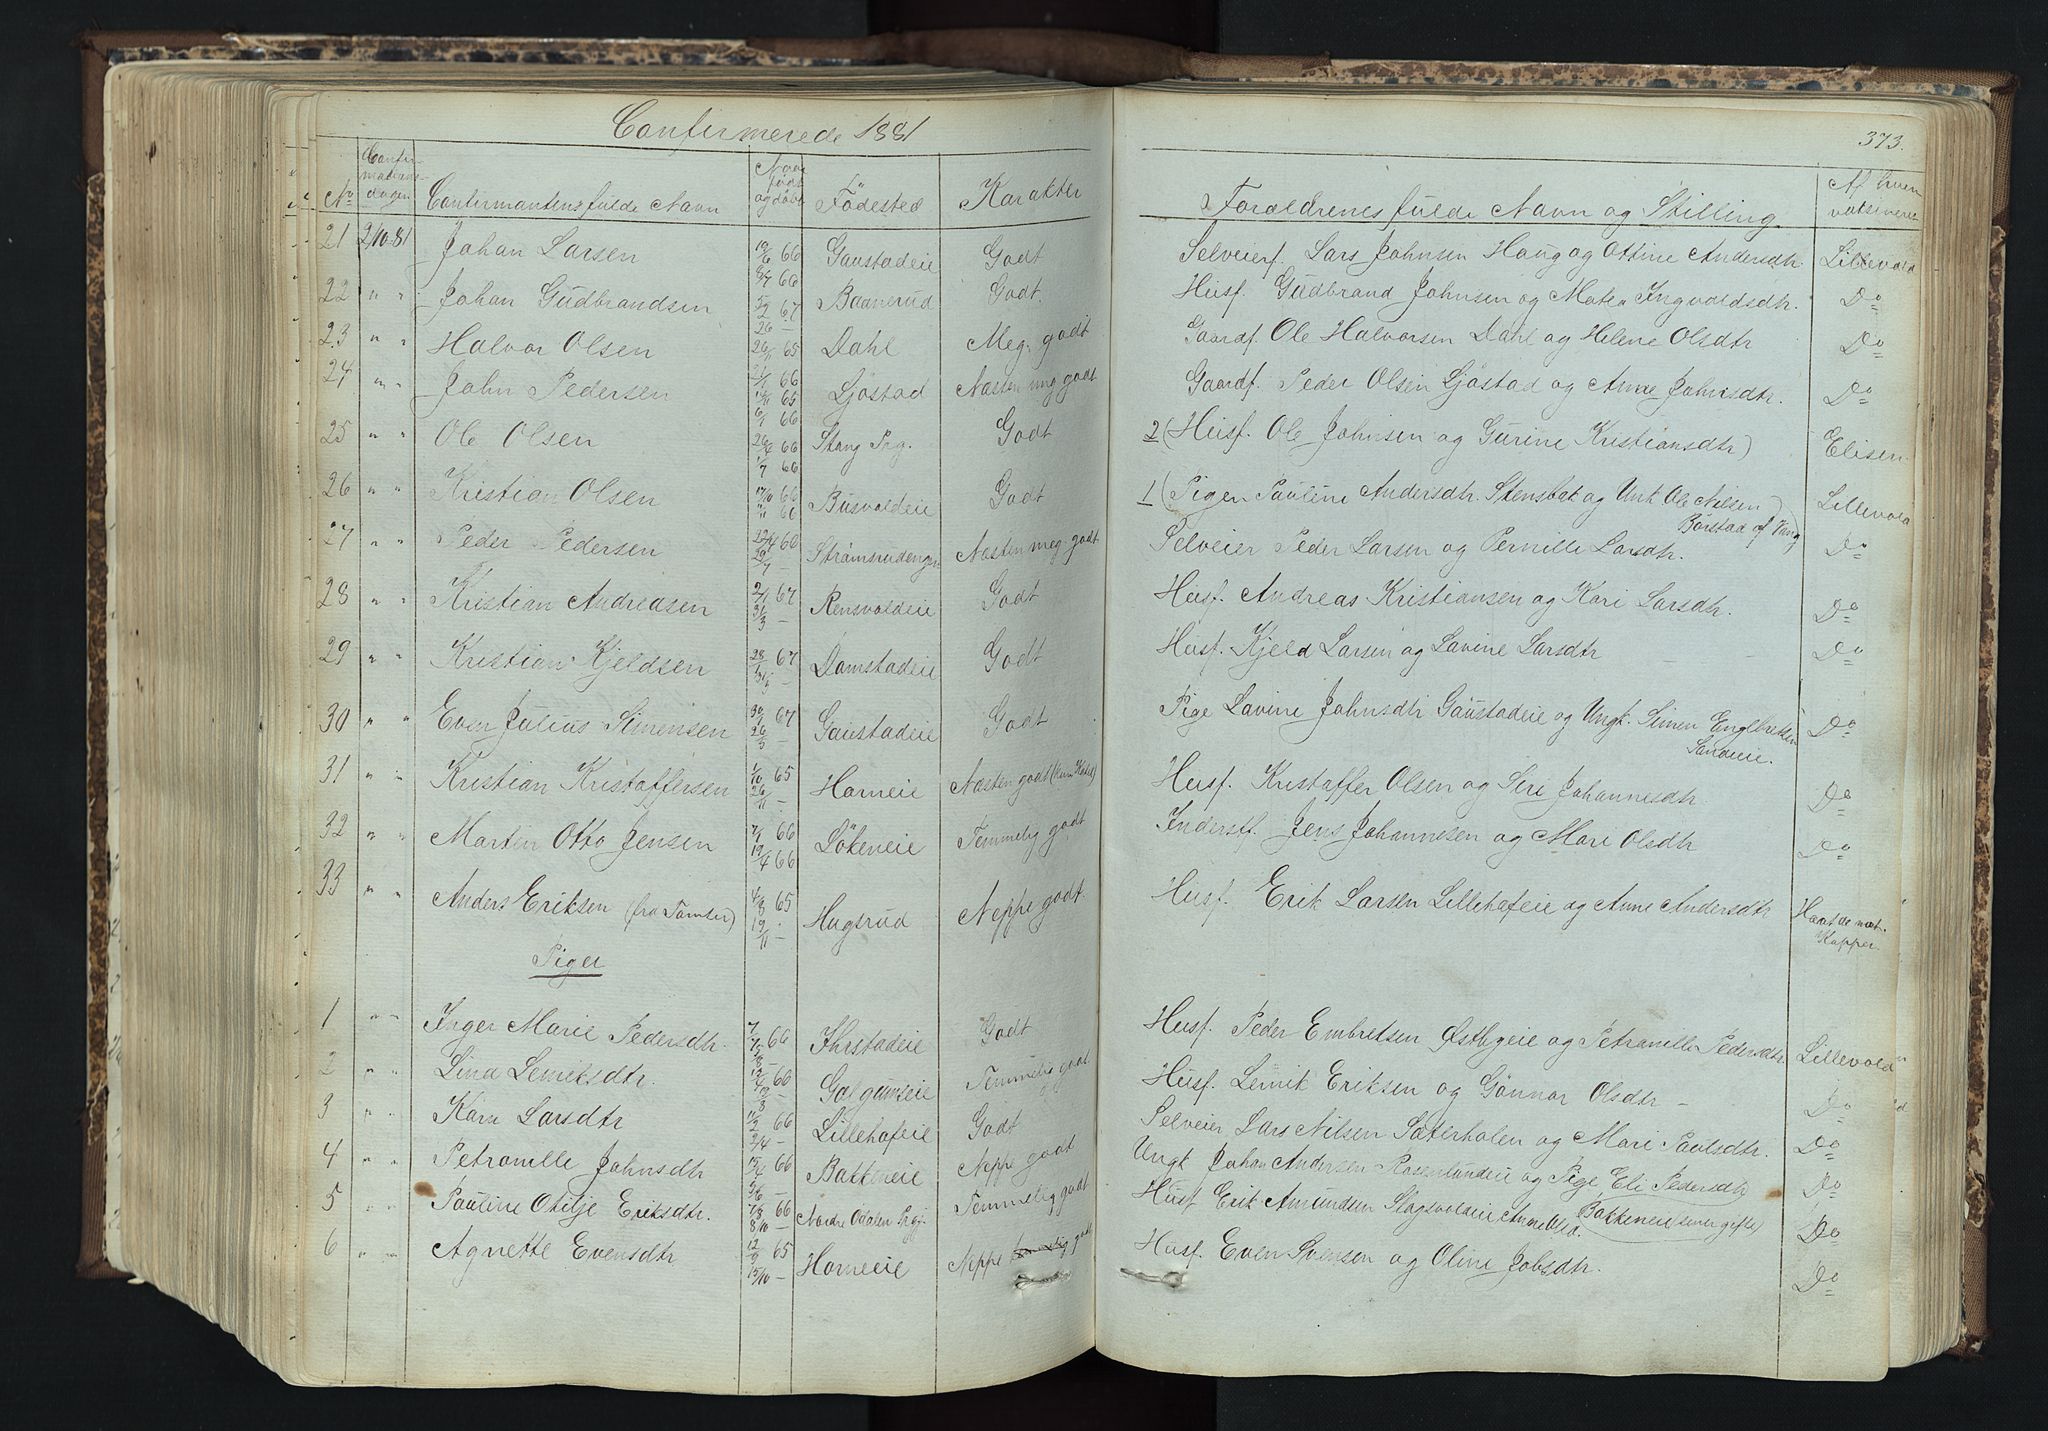 Confirmerede 1881
373.
No
Confir-
mations-
dagen
Confirmantens fulde Navn
Naar
født
og døbt
Fødested
Karakter
Forældrenes fulde Navn og Stilling
Af hvem
vaksineret
21 2/10 81 Johan Larsen 19/6 66 Gaustadeie Godt Selveierf. Lars Johnsen Haug og Ottine Andersdtr. Lillevold
22 " " Johan Gudbrandsen Baanerud Godt. Husf. Gudbrand Johnsen og Mathea Ingvaldsdtr. Do
23 " " Halvor Olsen 26/11 65 Dahl Meg. godt Gaardf. Ole Halvorsen Dahl og Helene Olsdtr Do
24 " " John Pedersen Ljøstad Næsten mg godt Gaardf. Peder Olsen Ljøstad og Anne Johnsdtr. Do
25 " " Ole Olsen 26/4 66 Stang Prg. Godt 2 (Husf. Ole Johnsen og Gurine Kristiansdtr) Elisen
26 " " Kristian Olsen 17/10 66 Busvoldeie Godt 1 (Pigen Pauline Andersdtr. Stensbak og Unk Ole Nilsen
Børstad af Vang) Lillevold
27 " " Peder Pedersen Strømsrudengen Næsten meg. godt Selveier Peder Larsen og Pernille Larsdtr. Do
28 " " Kristian Andreasen 2/1 67 31/3 – Rensvoldeie Godt Husf. Andreas Kristiansen og Kari Larsdtr. Do
29 " " Kristian Kjeldsen 28/1 67 Damstadeie Godt Husf. Kjeld Larsen og Lavine Larsdtr Do
30 " " Even Julius Simensen 30/1 67 26/5 – Gaustadeie Godt Pige Lavine Johnsdtr Gaustadeie og Ungk. Simen Englbretsen
Sandeie. Do
31 " " Kristian Kristoffersen 1/10 65 26/11 – Horneie Næsten godt Husf. Kristoffer Olsen og Siri Johannesdtr Do
32 " " Marten Otto Jensen 7/1 66 19/4 66 Løkeneie Temmelig godt Inderstf. Jens Johannesen og Mari Olsdtr Do
33 " " Anders Eriksen (fra Tomter) 4/8 65 19/11 Hugsrud Neppe godt. Husf. Erik Larsen Lillehofeie og Anne Andersdtr
Kopper.
Piger
1 " " Inger Marie Pedersdtr. Ihrstadeie Godt Husf. Peder Embretsen Østbyeie og Petronille Pedersdtr Lillevold
2 " " Lina Lemiksdtr. Galgumseie Temmelig godt Husf. Lemik Eriksen og Gønnor Olsdtr – Do
3 " " Karn Larsdtr 11/2 66 2/4 – Lillehofeie Godt Selveier Lars Nilsen Sæterholen og Mari Paulsdtr. Do
4 " " Petronille Johnsdtr 15/4 66 Bakkeneie Neppe godt Ungk Johan Andersen Rosenlundeie og Pige Eli Pedersdtr
Bakkeneie (senere gifte) Do
5 " " Pauline Otilje Eriksdtr. 7/8 66 8/10 – Nordre Odalen Prgj. Temmelig godt Husf Erik Amundsen Slagsvoldeie Anne Olsd. Do
6 " " Agnette Evensdtr 12/9 65 15/10 – Horneeie Neppe godt Husf. Even Svensen og Oline Jobsdtr. Do